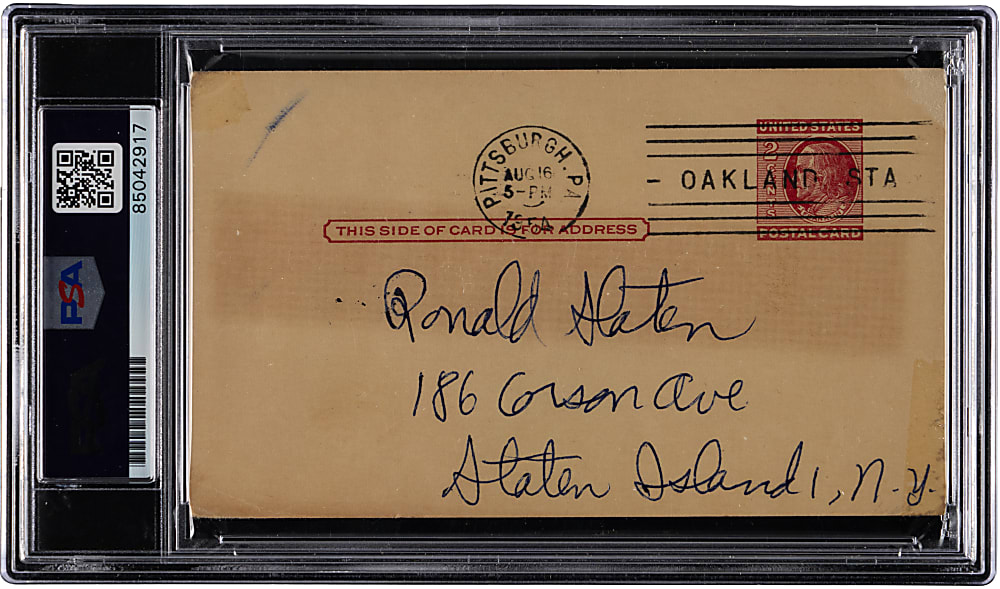 85042917
PSA
PITTSBURGH, PA
AUG 16
5-PM
1954
UNITED STATES
2 CENTS
- OAKLAND STA
POSTAL CARD
THIS SIDE OF CARD IS FOR ADDRESS
Ronald Slaten
186 Corson Ave
Staten Island 1, N.Y.